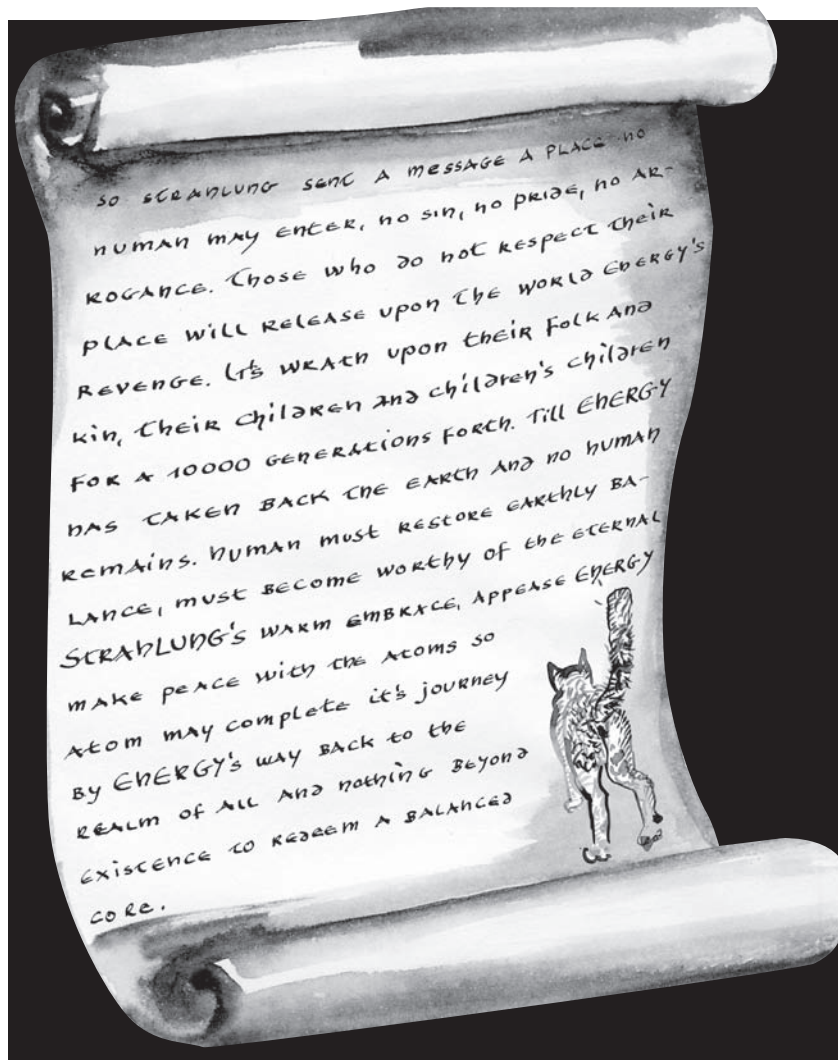 SO STRAHLUNG SENT A MESSAGE A PLACE NO
HUMAN MAY ENTER, NO SIN, NO PRIDE, NO AR-
ROGANCE. THOSE WHO DO NOT RESPECT THEIR
PLACE WILL RELEASE UPON THE WORLD ENERGY'S
REVENGE. IT'S WRATH UPON THEIR FOLK AND
KIN, THEIR CHILDREN AND CHILDREN'S CHILDREN
FOR A 10000 GENERATIONS FORTH. TILL ENERGY
HAS TAKEN BACK THE EARTH AND NO HUMAN
REMAINS. HUMAN MUST RESTORE EARTHLY BA-
LANCE, MUST BECOME WORTHY OF THE ETERNAL
STRAHLUNG'S WARM EMBRACE, APPEASE ENERGY
MAKE PEACE WITH THE ATOMS SO
ATOM MAY COMPLETE IT'S JOURNEY
BY ENERGY'S WAY BACK TO THE
REALM OF ALL AND NOTHING BEYOND
EXISTENCE TO REDEEM A BALANCED
CORE.